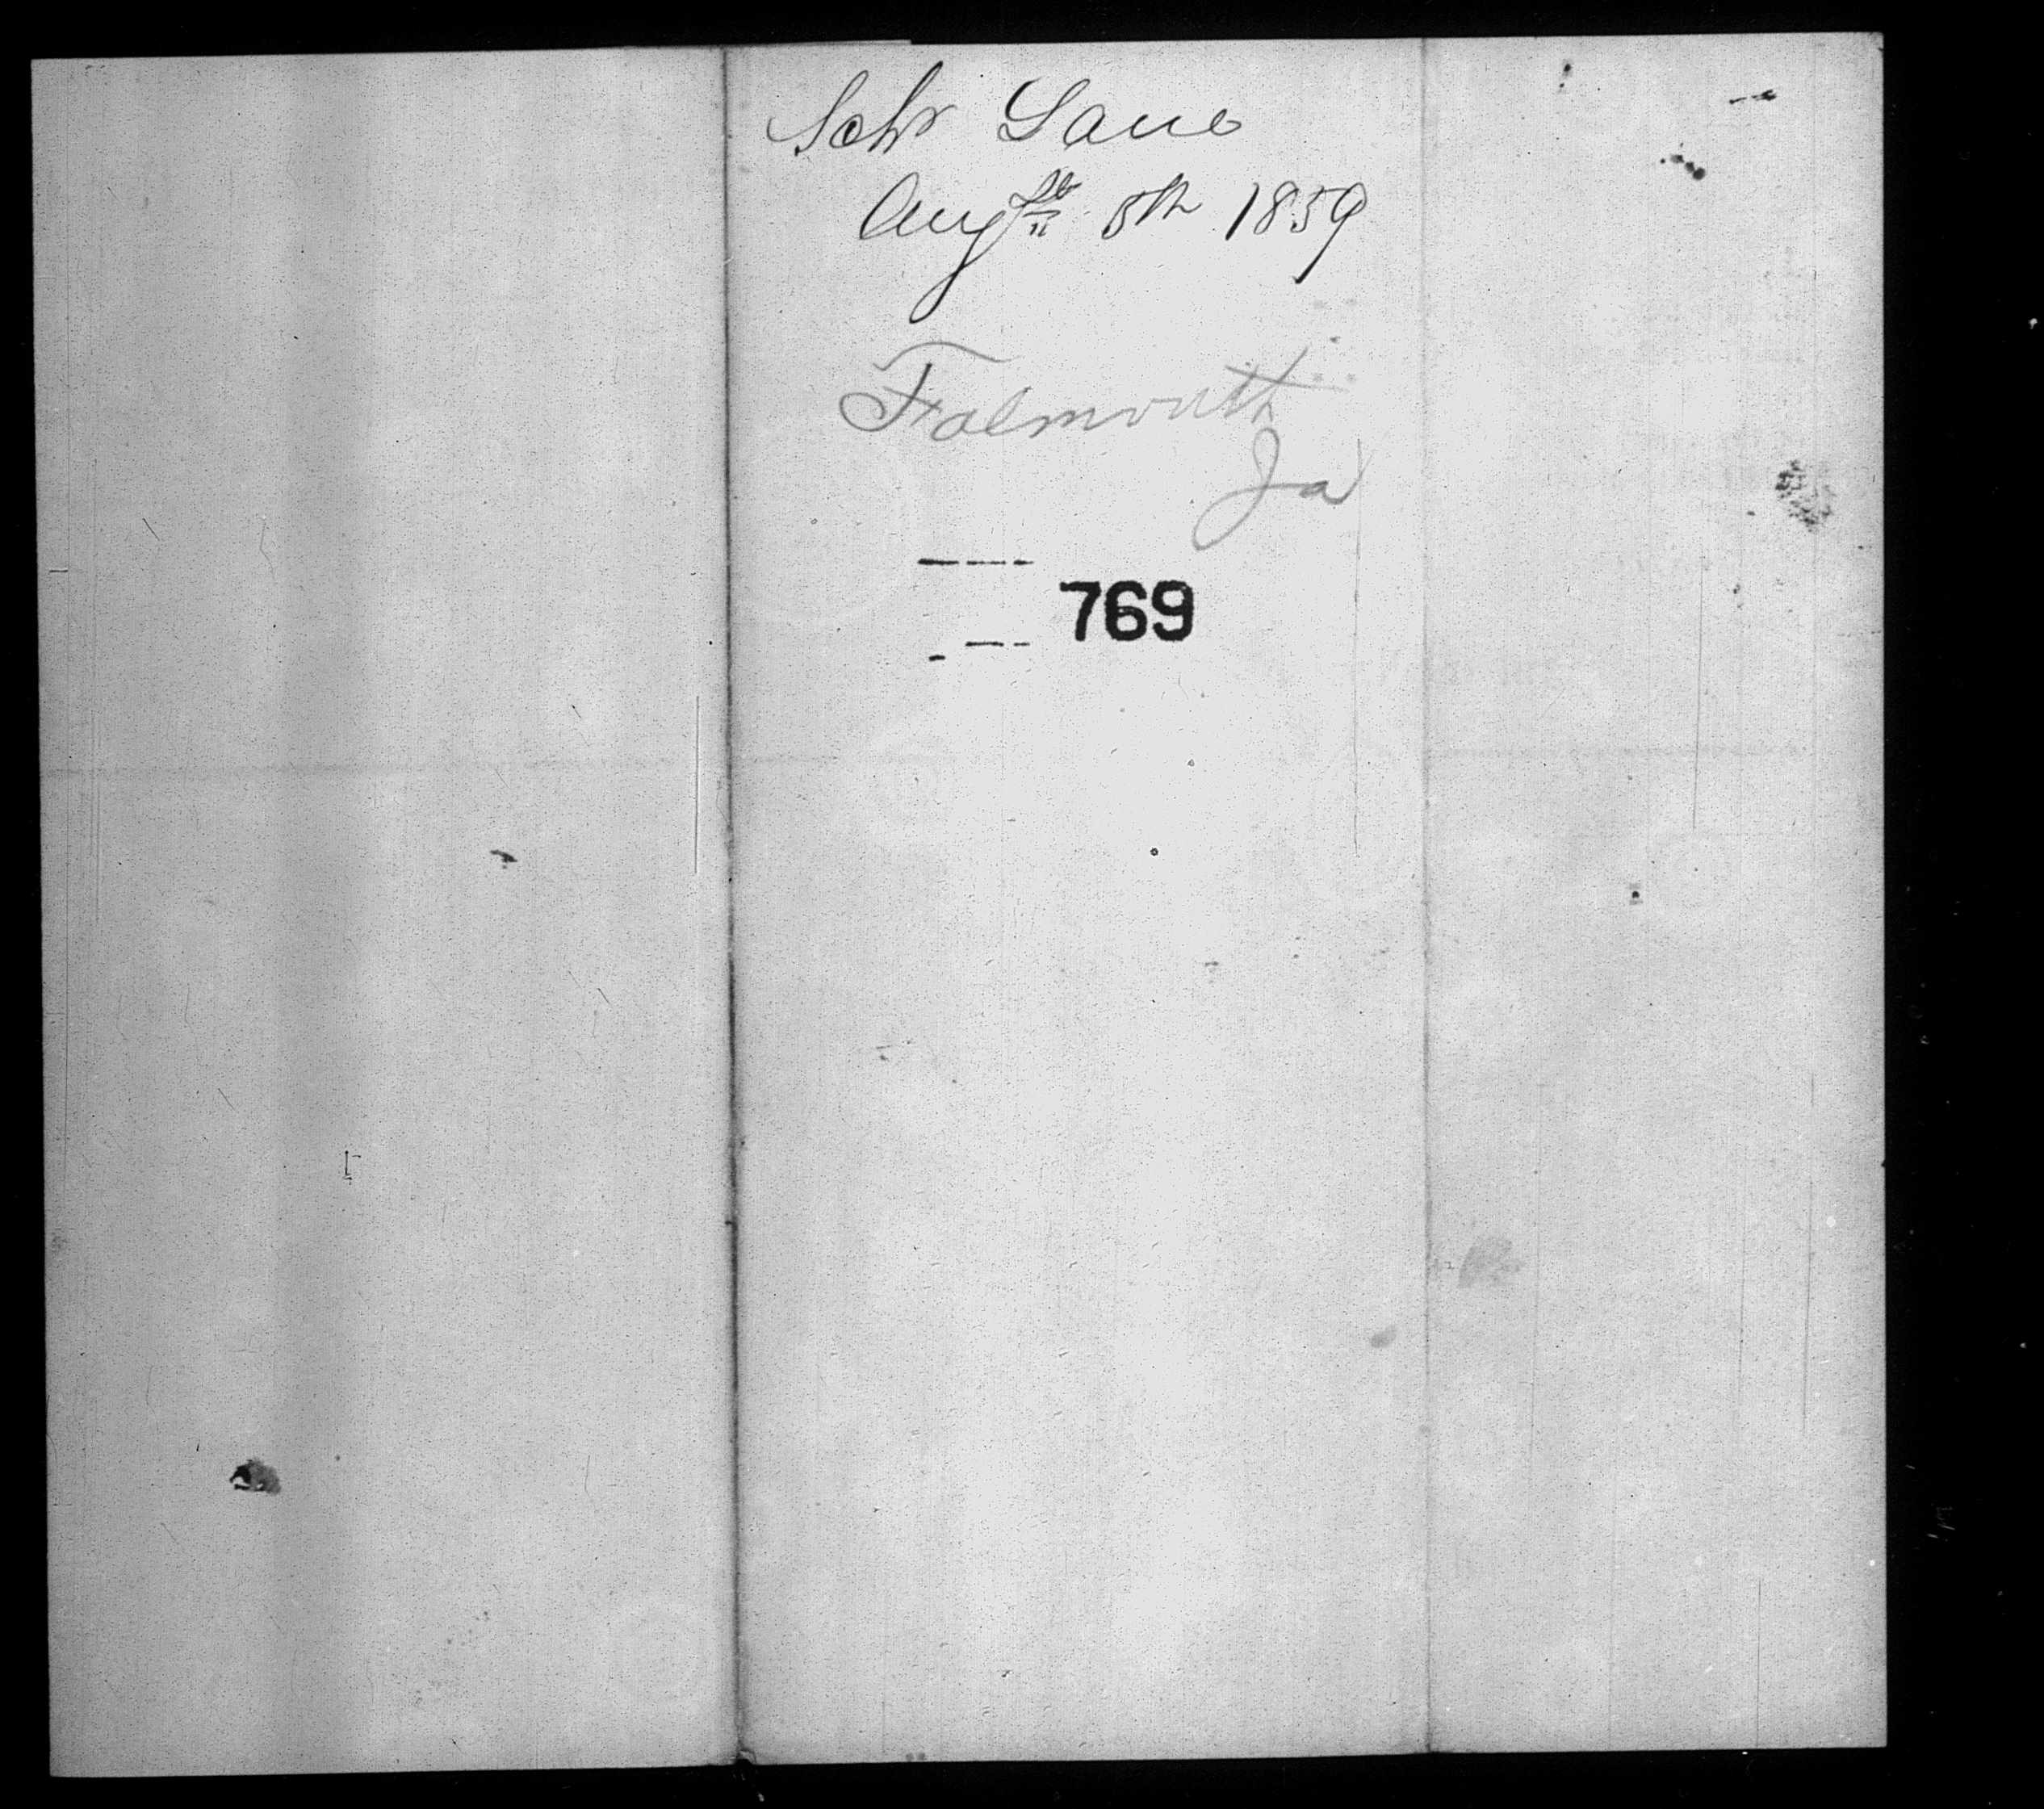 Schr Lane
Augst 5th 1859
Falmouth
Ja
769